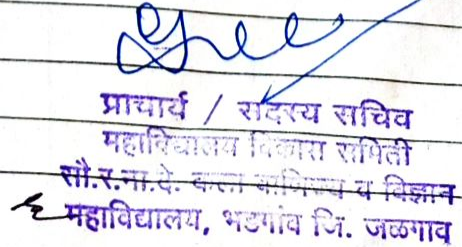 प्राचार्य / सदस्य सचिव
महाविद्यालय विकास समिती
सौ.र.ना.दे. कला वाणिज्य व विज्ञान
महाविद्यालय, भडगांव जि. जळगाव